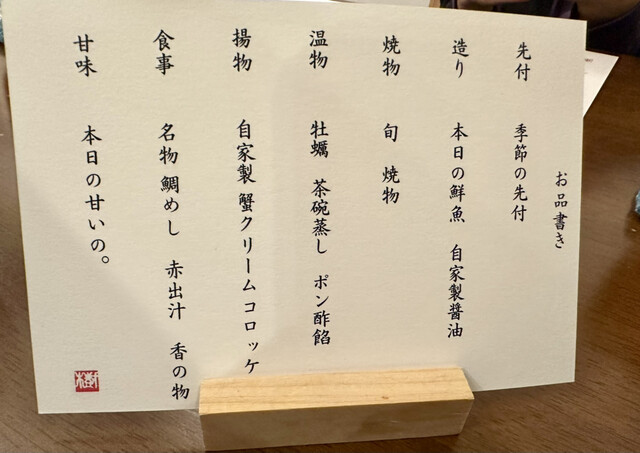 お品書き
先付 季節の先付
造り 本日の鮮魚 自家製醤油
焼物 旬 焼物
温物 牡蠣 茶碗蒸し ポン酢餡
揚物 自家製 蟹クリームコロッケ
食事 名物 鯛めし 赤出汁 香の物
甘味 本日の甘いの。